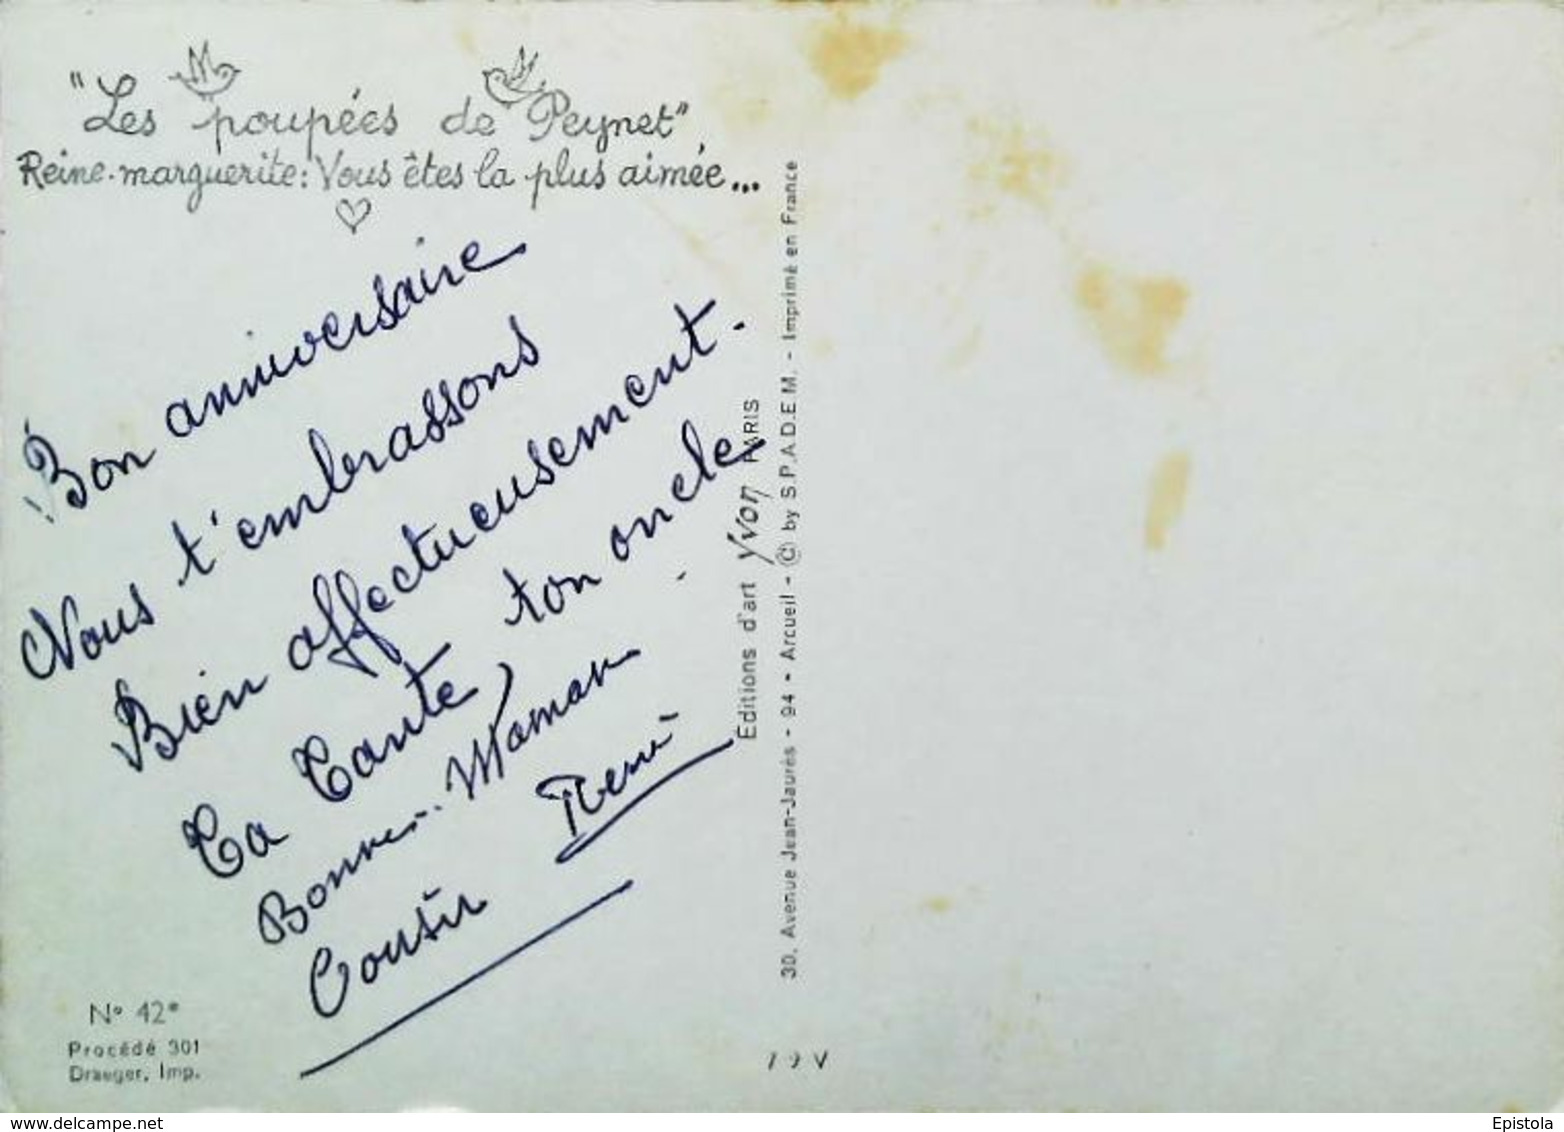 "Les poupées de Peynet"
Reine-marguerite: Vous êtes la plus aimée...
Bon anniversaire
Nous t'embrassons
Bien affectueusement.
Ta Tante, ton oncle
Bonne-Maman
Cousin René
N° 42*
Procédé 301
Draeger, Imp.
Editions d'art Yvon PARIS
30, Avenue Jean-Jaurès - 94 - Arcueil - © by S.P.A.D.E.M. - Imprimé en France
www.delcampe.net
Epistola